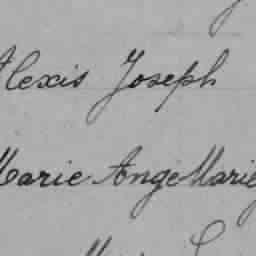 Alexis Joseph
Marie Ange Marie